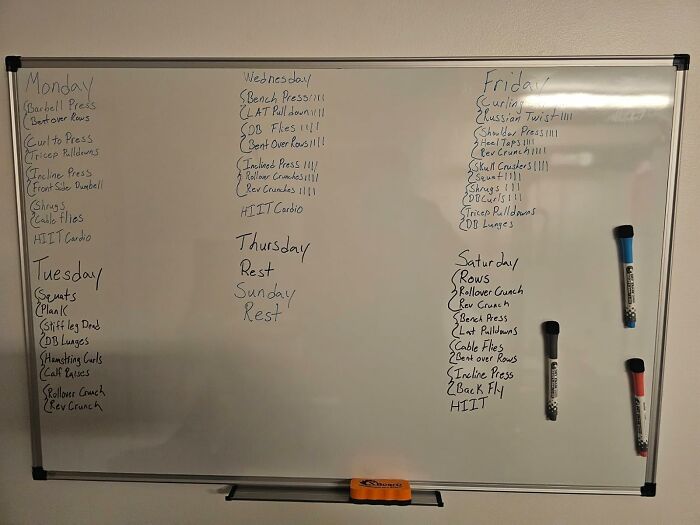 Monday
Barbell Press
Bent over Rows
Curl to Press
Tricep Pulldowns
Incline Press
Front Side Dumbell
Shrugs
Cable flies
HIIT Cardio
Tuesday
Squats
Plank
Stiff leg Dead
DB Lunges
Hamstring Curls
Calf Raises
Rollover Crunch
Rev Crunch
Wednesday
Bench Press ||||
LAT Pulldown ||||
DB Flies ||||
Bent Over Rows ||||
Inclined Press ||||
Rollover Crunches ||||
Rev Crunches ||||
HIIT Cardio
Thursday
Rest
Sunday
Rest
Friday
Curling
Russian Twist ||||
Shoulder Press ||||
Heel Taps ||||
Rev Crunch ||||
Skull Crushers ||||
Squat ||||
Shrugs |||
DB Curls |||
Tricep Pulldowns
DB Lunges
Saturday
Rows
Rollover Crunch
Rev Crunch
Bench Press
Lat Pulldowns
Cable Flies
Bent over Rows
Incline Press
Back Fly
HIIT